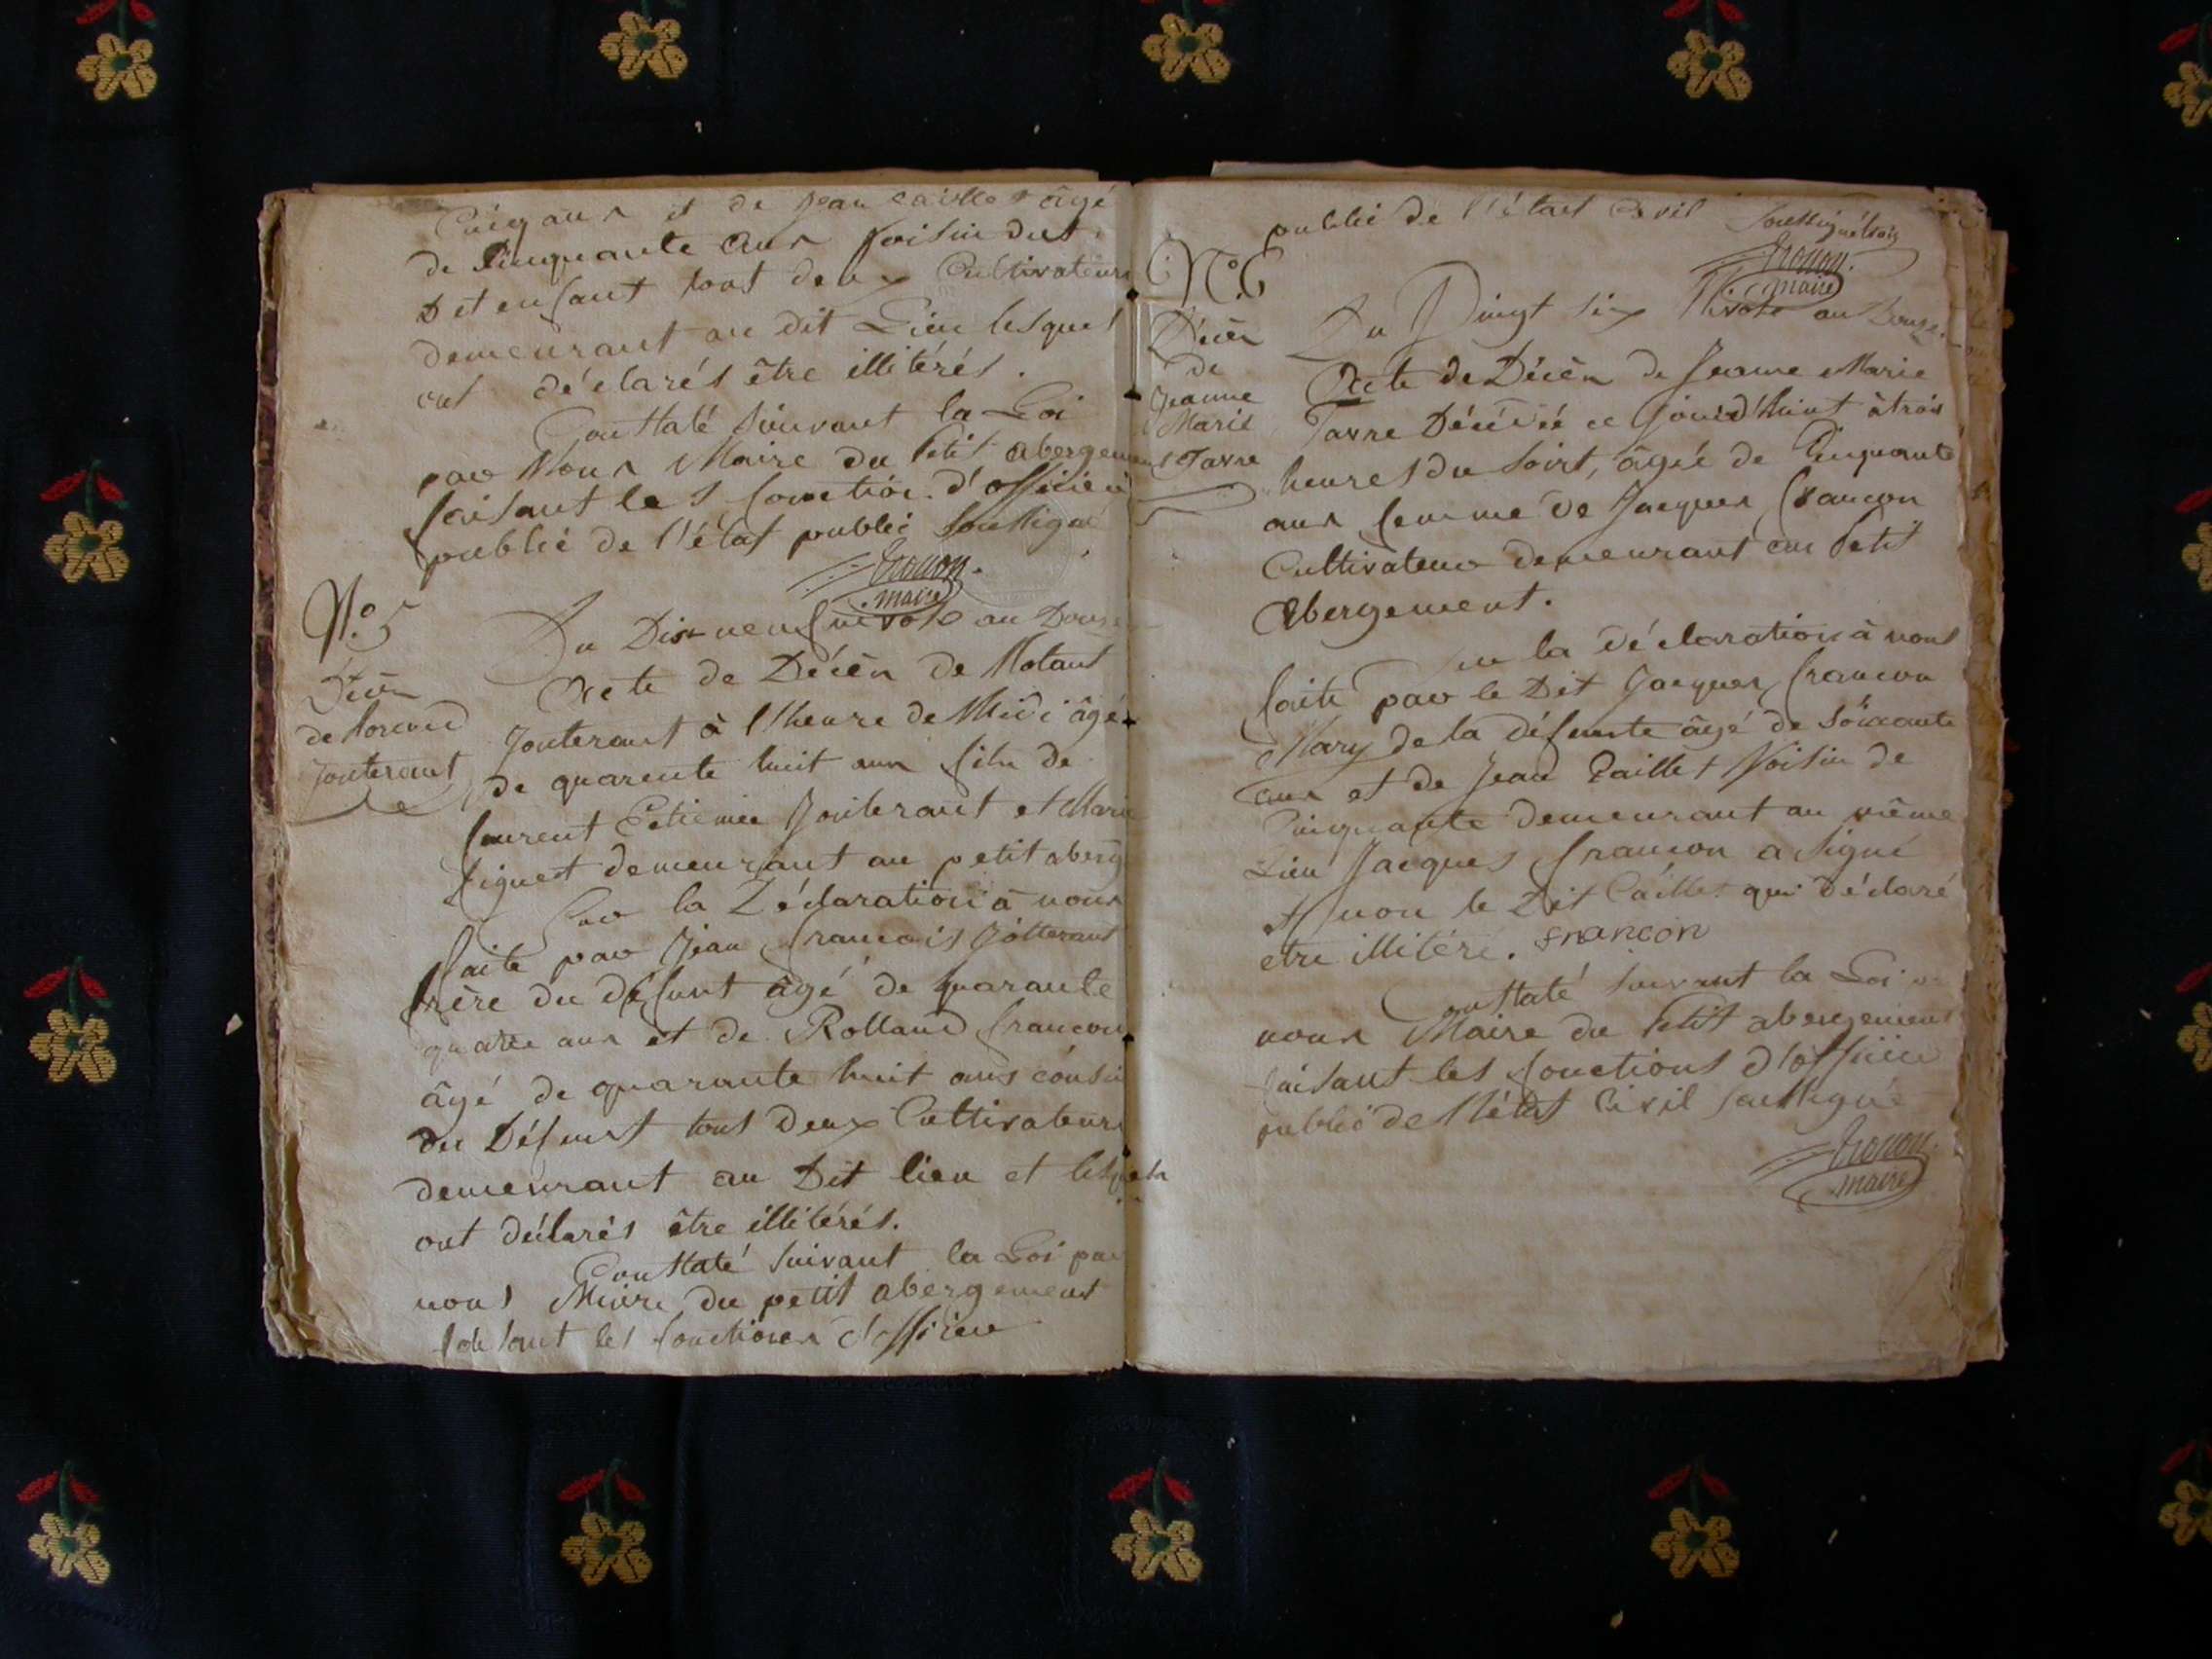 Cinq ans et de Jean Caillet âgé
de Cinquante ans Voisin dud.
Dit enfant tout deux Cultivateurs
demeurant au dit Lieu lesquel
ont déclarés être illitérés.
Constaté Suivant la Loi
par Nous Maire du Petit abergement
faisant les fonction d'officier
public de l'état public Soussigné
maire
N.o 5
Décès
de
Jouterant
Du Dix neuf nivose an Douze
Acte de Décès de Rolant
Jouterant à l'heure de Midi âgé
de quarente huit ans fils de
laurent Etienne Jouterant et Marie
demeurant au petit aberg
Sur la Déclaration à nous
faite par Jean francois Jotterant
frère du défunt âgé de quarante
quatre ans et de Rolland francon
âgé de quarante huit ans cousin
du Défunt tous Deux Cultivateurs
demeurant au Dit lieu et lesquels
ont déclarés être illitérés.
Constaté Suivant la Loi par
nous Maire du petit abergement
faisant les fonctions d'officier
public de l'état Civil
maire
N.o 6
Décès
de
Jeanne
Marie
Favre
Du Vingt six Nivose an Douze
Acte de Décès de Jeanne Marie
Favre Décédée ce jourd'huit à trois
heures du Soirt, âgée de Cinquante
ans femme de Jacques francon
Cultivateur demeurant au Petit
Abergement.
Sur la déclaration à nous
faite par le Dit Jacques francon
Mary de la défunte âgé de Soixante
ans et de Jean Caillet Voisin de
Cinquante demeurant au même
Lieu Jacques francon a Signé
et non le Dit Caillet qui Déclaré
etre illitéré. francon
Constaté Suivant la Loi
nous Maire du Petit abergement
faisant les fonctions d'officier
public de l'état Civil Soussigné
maire